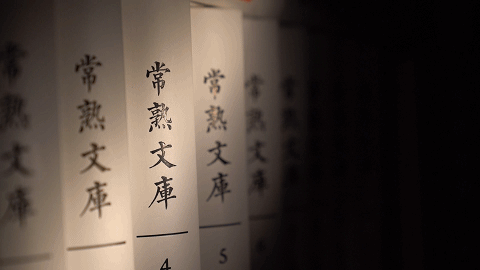 常熟文庫
常熟文庫
常熟文庫
4
常熟文庫
5
常熟文庫